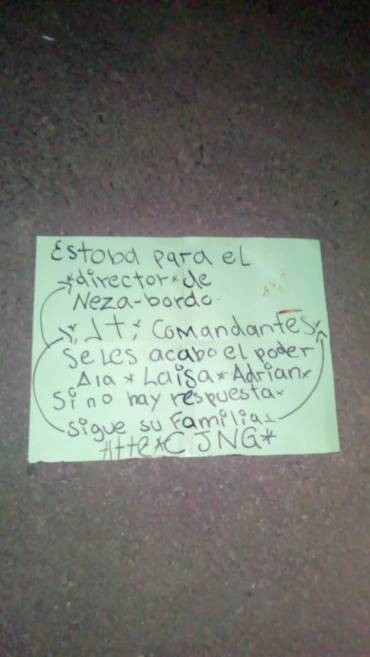 Estaba para el
*director* de
Neza-bordo.
Y; JT; ComandanTes*
Se les acabo el poder
Ala * Laisa * Adrian*
Si no hay respuesta
sigue su Familia
Atte * CJNG *